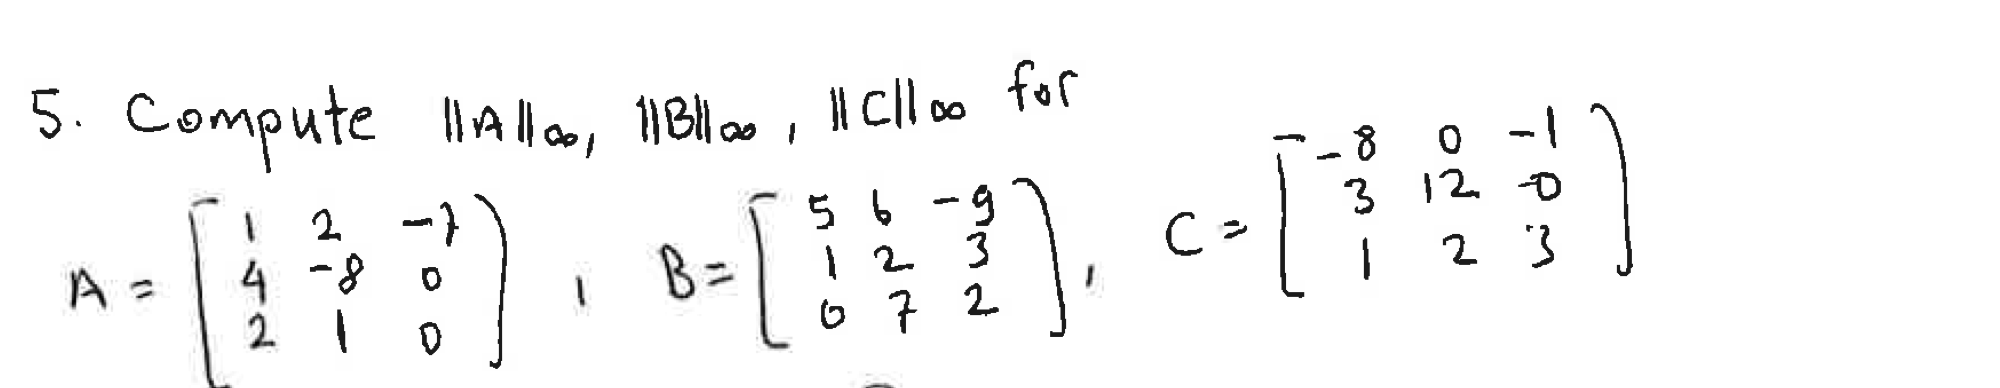 5. Compute ||A||∞, ||B||∞, ||C||∞ for
A = [ 1 2 -7
4 -8 0
2 1 0 ] , B = [ 5 6 -9
1 2 3
0 7 2 ] , C = [ -8 0 -1
3 12 -0
1 2 3 ]